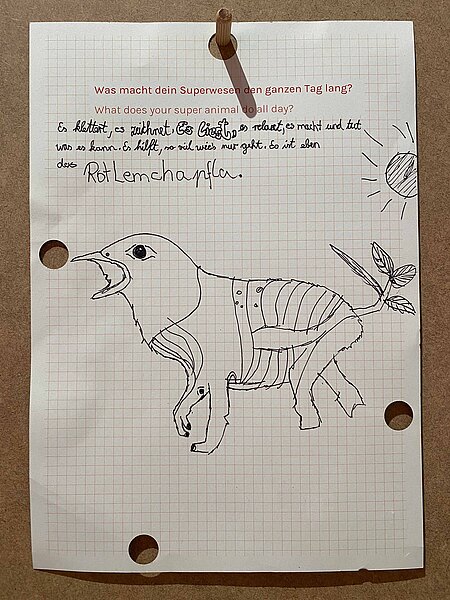 Was macht dein Superwesen den ganzen Tag lang?
What does your super animal do all day?
Es klettert, es zeichnet. Es es relaxt, es macht und tut
was es kann. Es hilft, so viel wie's nur geht. Es ist eben
das RotLemchapfla.